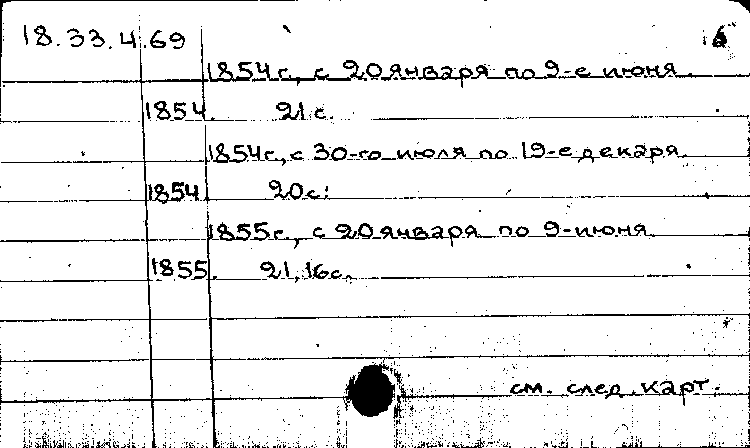 18.33.4.69 6
1854г., с 20 января по 9-е июня.
1854. 21 с.
1854г., с 30-го июля по 19-е декаря.
1854. 20с.
1855г., с 20 января по 9-июня.
1855. 21, 16с.
см. след. карт.